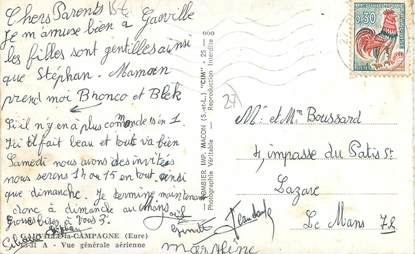 Chers Parents
Je m'amuse bien à Graville
les filles sont gentilles ainsi
que Stéphan. Maman
prend moi Bronco et Blek
S'il n'y en à plus
Ici il fait beau et tout va bien
Samedi nous avons des invités
nous serons 14 ou 15 en tout ainsi
que dimanche. Je termine maintenant
donc à dimanche au moins
bises à vous 3.
LA-CAMPAGNE (Eure)
A - Vue générale aérienne
COMBIER IMP. MACON (S.-et-L.) "CIM" - 25 - 900
Photographie Véritable - Reproduction Interdite
27
0,30
Mr et Mme Boussard
4, impasse du Patis St
Lazare
Le Mans 72